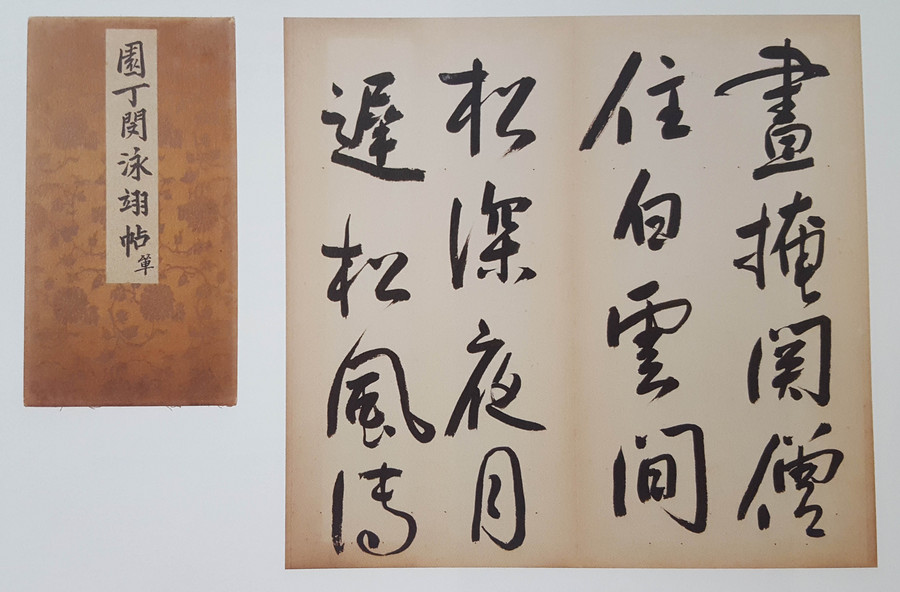 園丁閔泳翊帖單
晝掩關僧
住白雲間
松深夜月
遲松風傳